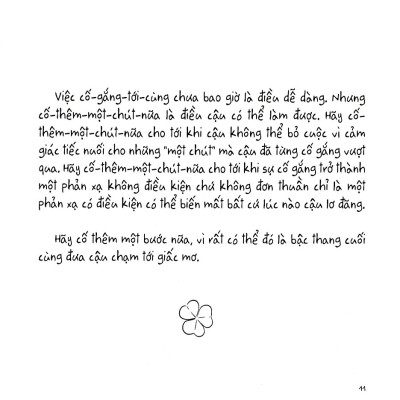 Việc cố-gắng-tới-cùng chưa bao giờ là điều dễ dàng. Nhưng
cố-thêm-một-chút-nữa là điều cậu có thể làm được. Hãy cố-
thêm-một-chút-nữa cho tới khi cậu không thể bỏ cuộc vì cảm
giác tiếc nuối cho những "một chút" mà cậu đã từng cố gắng vượt
qua. Hãy cố-thêm-một-chút-nữa cho tới khi sự cố gắng trở thành
một phản xạ không điều kiện chứ không đơn thuần chỉ là một
phản xạ có điều kiện có thể biến mất bất cứ lúc nào cậu lơ đãng.
Hãy cố thêm một bước nữa, vì rất có thể đó là bậc thang cuối
cùng đưa cậu chạm tới giấc mơ.
11